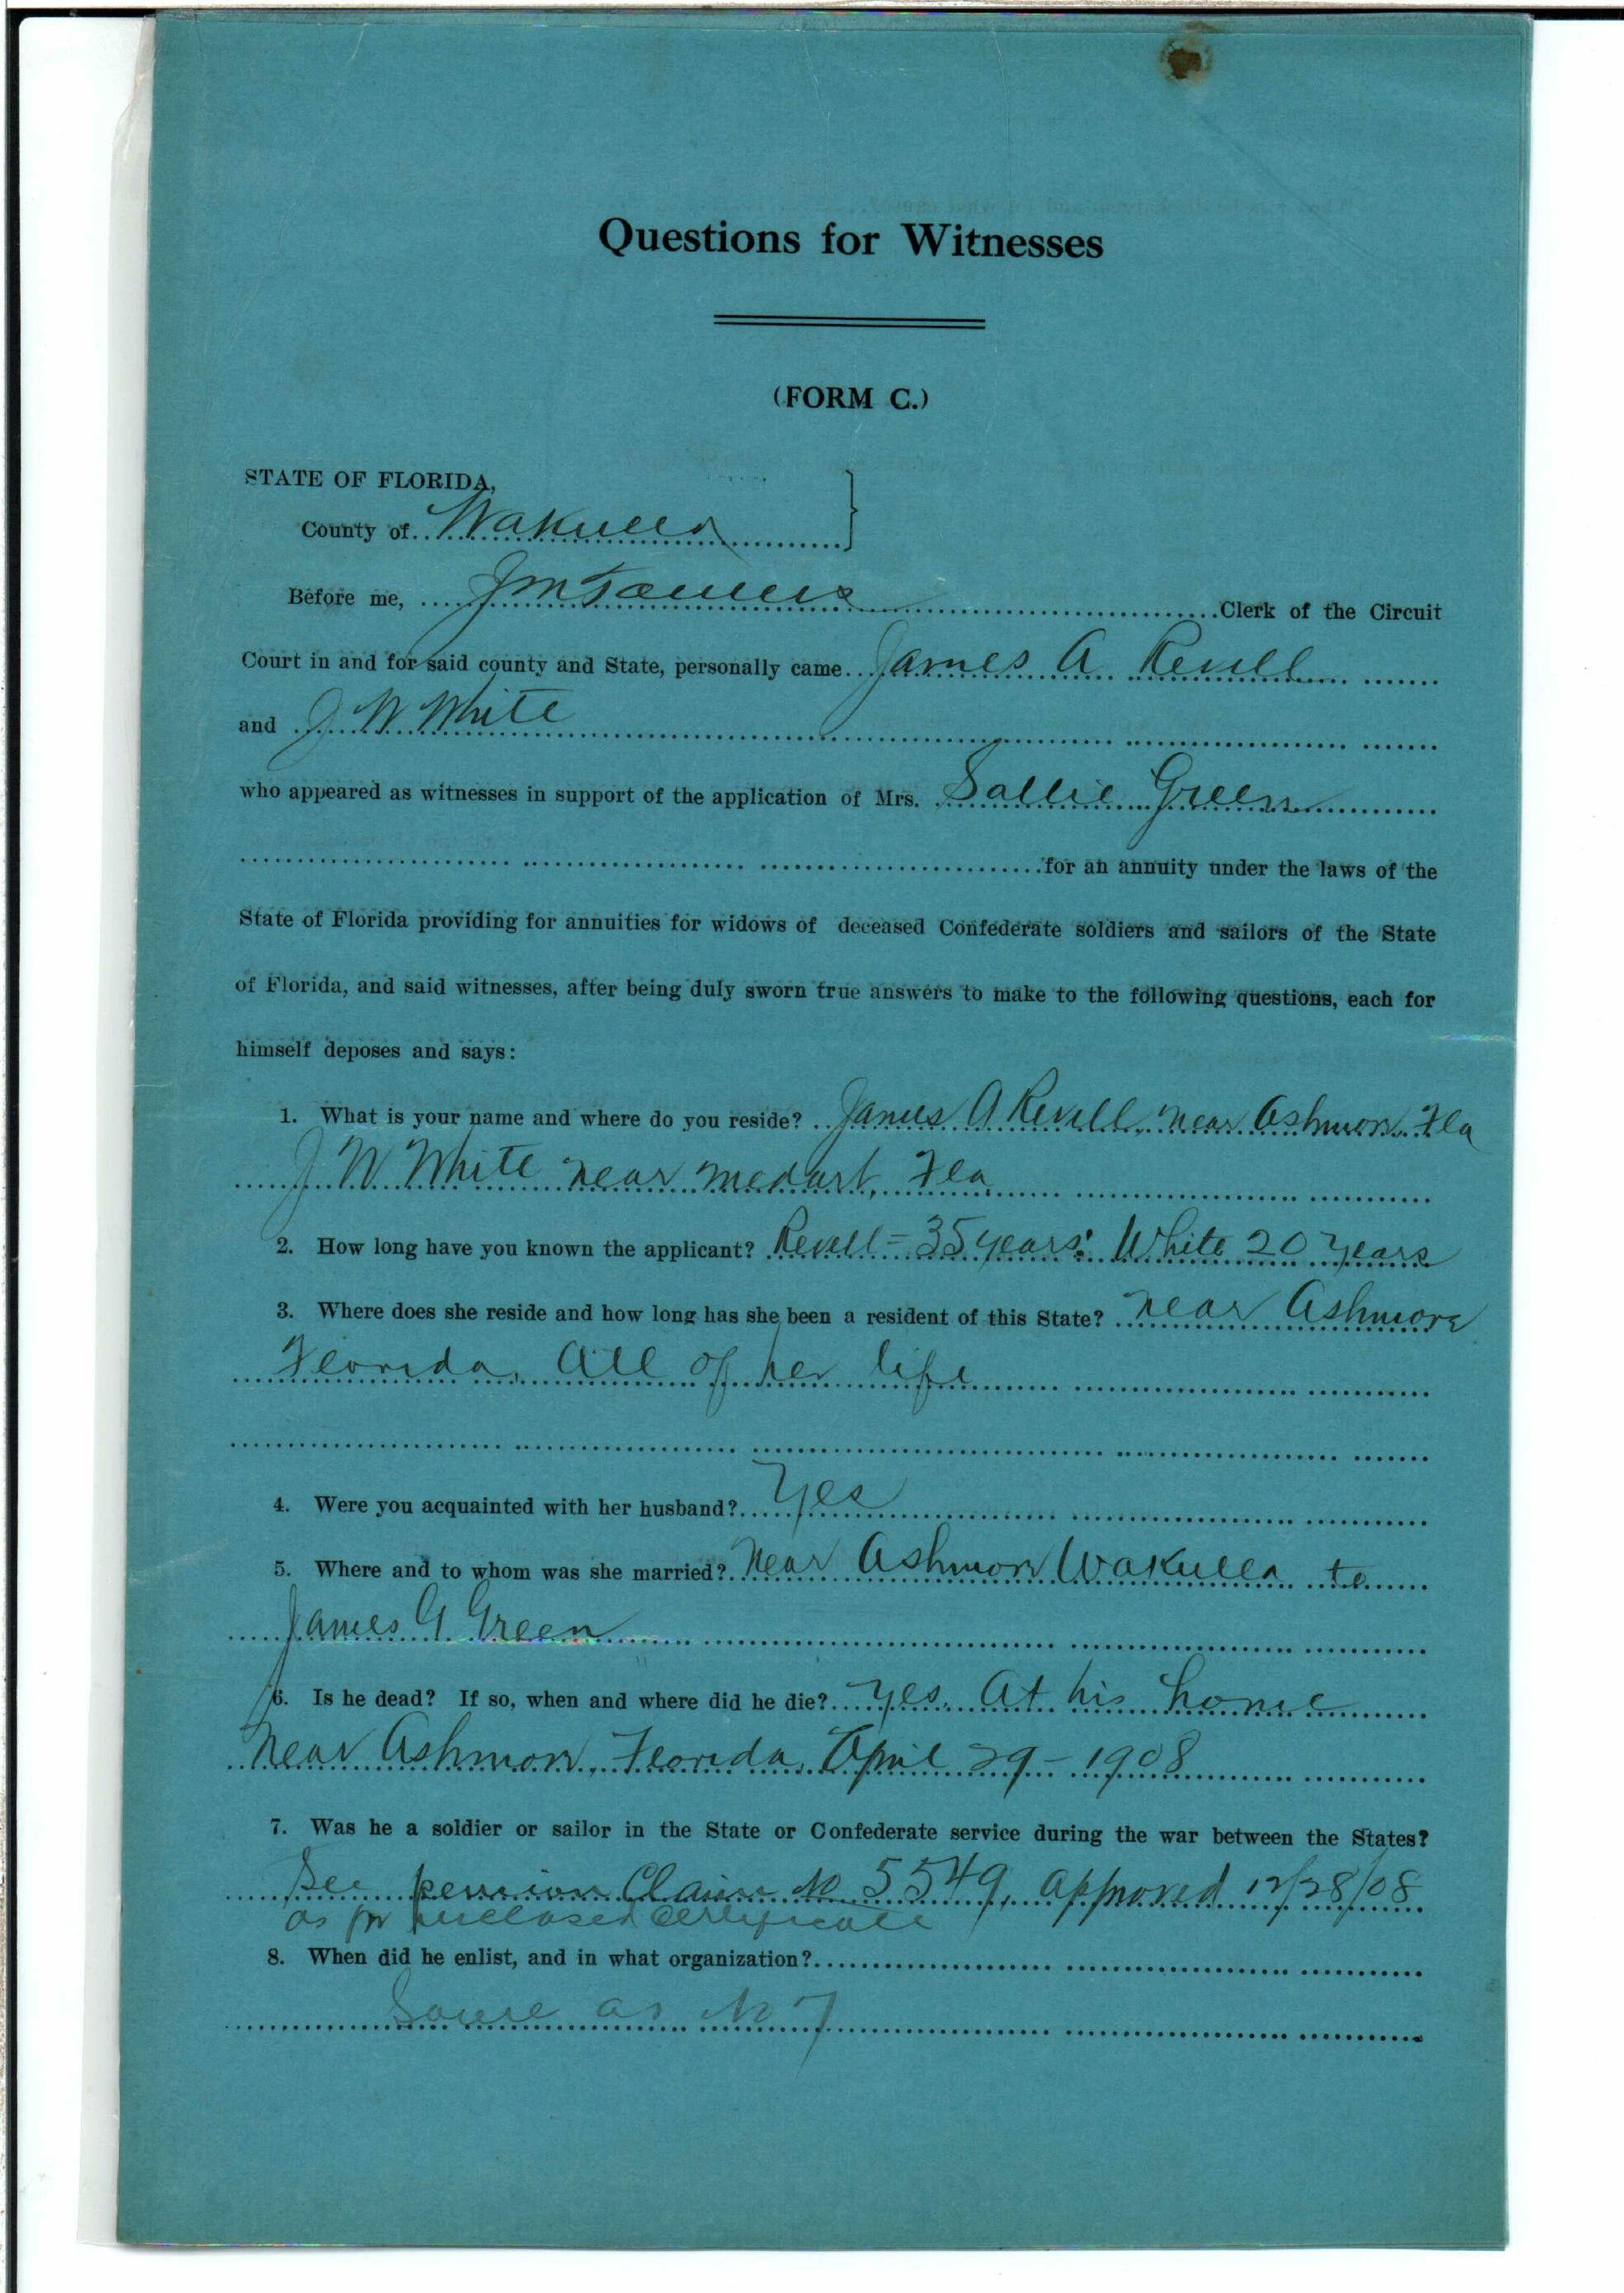 Questions for Witnesses
(FORM C.)
STATE OF FLORIDA,
County of Wakulla
Before me, J M Towles Clerk of the Circuit
Court in and for said county and State, personally came James A Revell
and J W White
who appeared as witnesses in support of the application of Mrs. Sallie Green
for an annuity under the laws of the
State of Florida providing for annuities for widows of deceased Confederate soldiers and sailors of the State
of Florida, and said witnesses, after being duly sworn true answers to make to the following questions, each for
himself deposes and says:
1. What is your name and where do you reside? James A Revell, near Ashmore, Fla
J W White near Medart, Fla
2. How long have you known the applicant? Revell = 35 years: White 20 years
3. Where does she reside and how long has she been a resident of this State? near Ashmore
Florida, All of her life
4. Were you acquainted with her husband? Yes
5. Where and to whom was she married? Near Ashmore Wakulla to
James G Green
6. Is he dead? If so, when and where did he die? Yes. At his home
Near Ashmore, Florida, April 29 - 1908
7. Was he a soldier or sailor in the State or Confederate service during the war between the States?
See pension Claim No 5549, approved 12/28/08
as pr enclosed certificate
8. When did he enlist, and in what organization?
Same as No 7